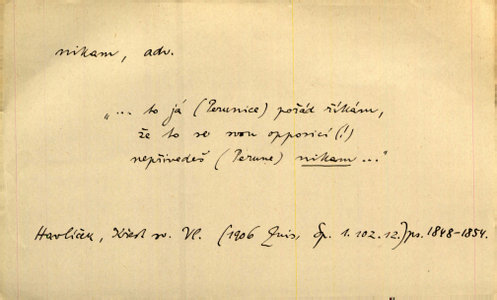 nikam, adv.
„... to já (Perunice) pořád říkám,
že to se svou opposicí (!)
nepřivedeš (Perune) nikam ..."
Havlíček, Křest sv. Vl. (1906 Quis, Sp. 1. 102. 12.) ps. 1848-1854.